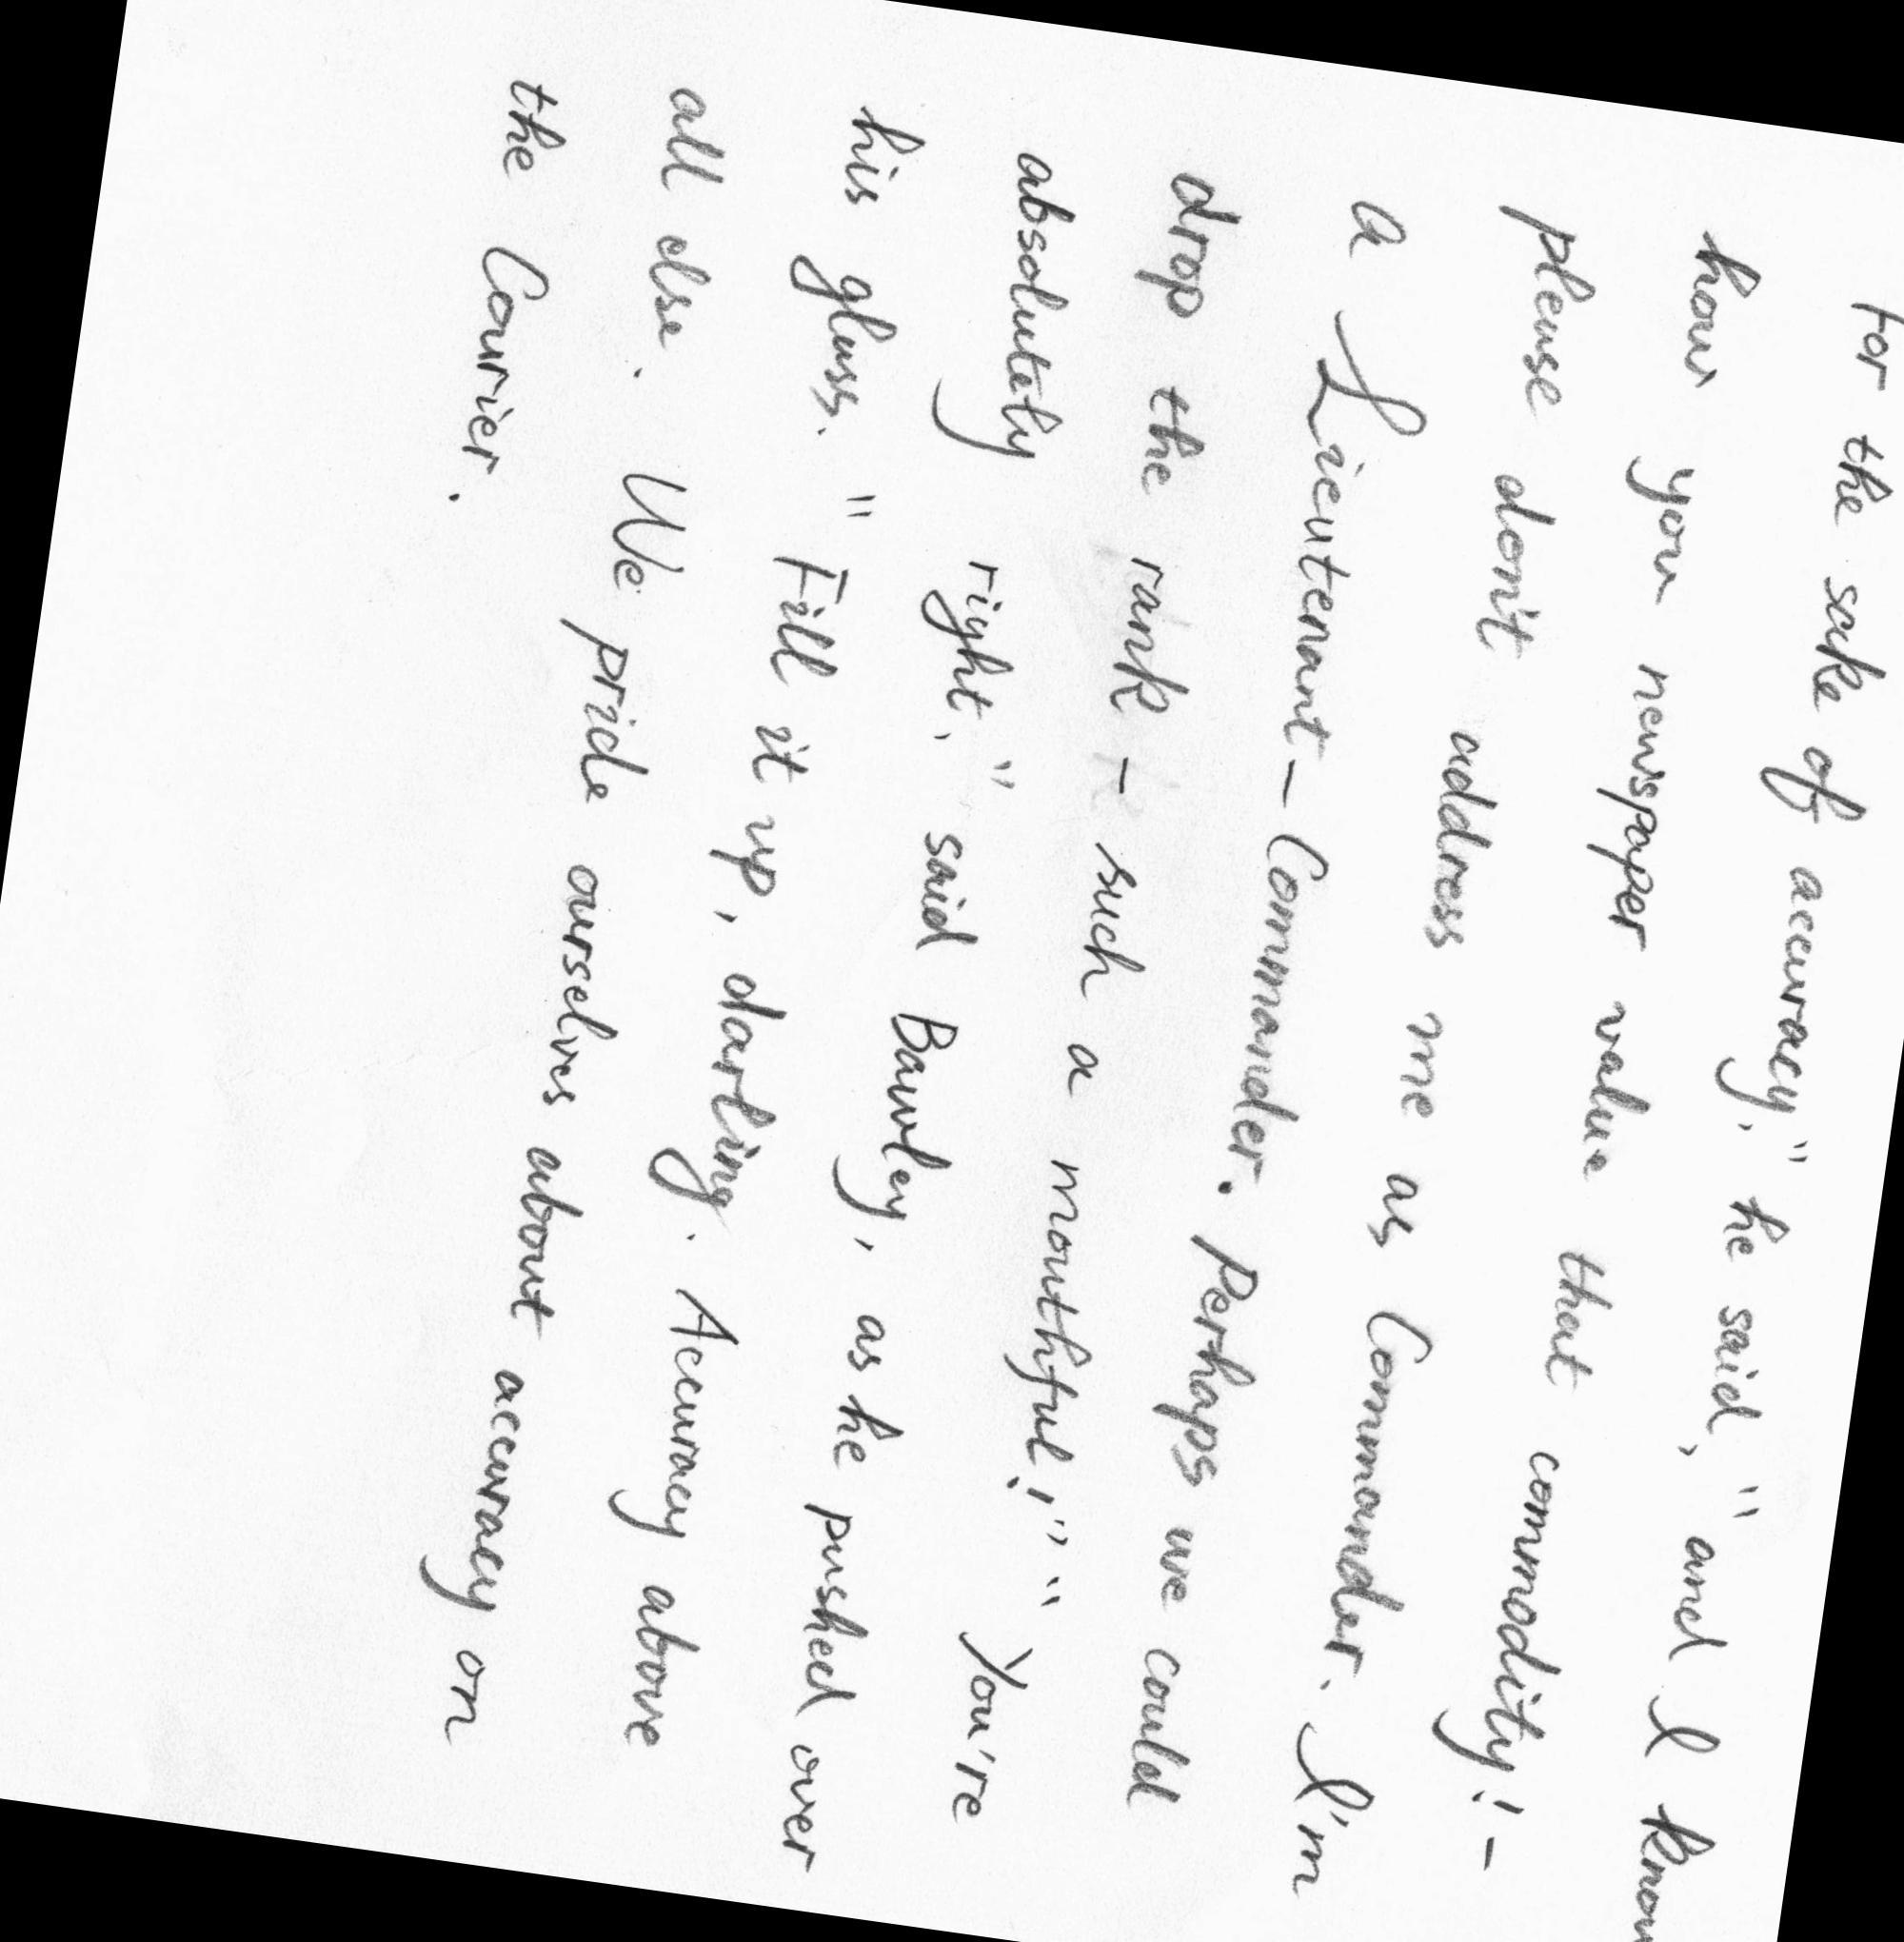 For the sake of accuracy," he said, "and I know
how you newspaper value that commodity! -
please don't address me as Commander. I'm
a Lieutenant-Commander. Perhaps we could
drop the rank - such a mouthful!" "You're
absolutely right," said Bawley, as he pushed over
his glass. "Fill it up, darling. Accuracy above
all else. We pride ourselves about accuracy on
the Courier.